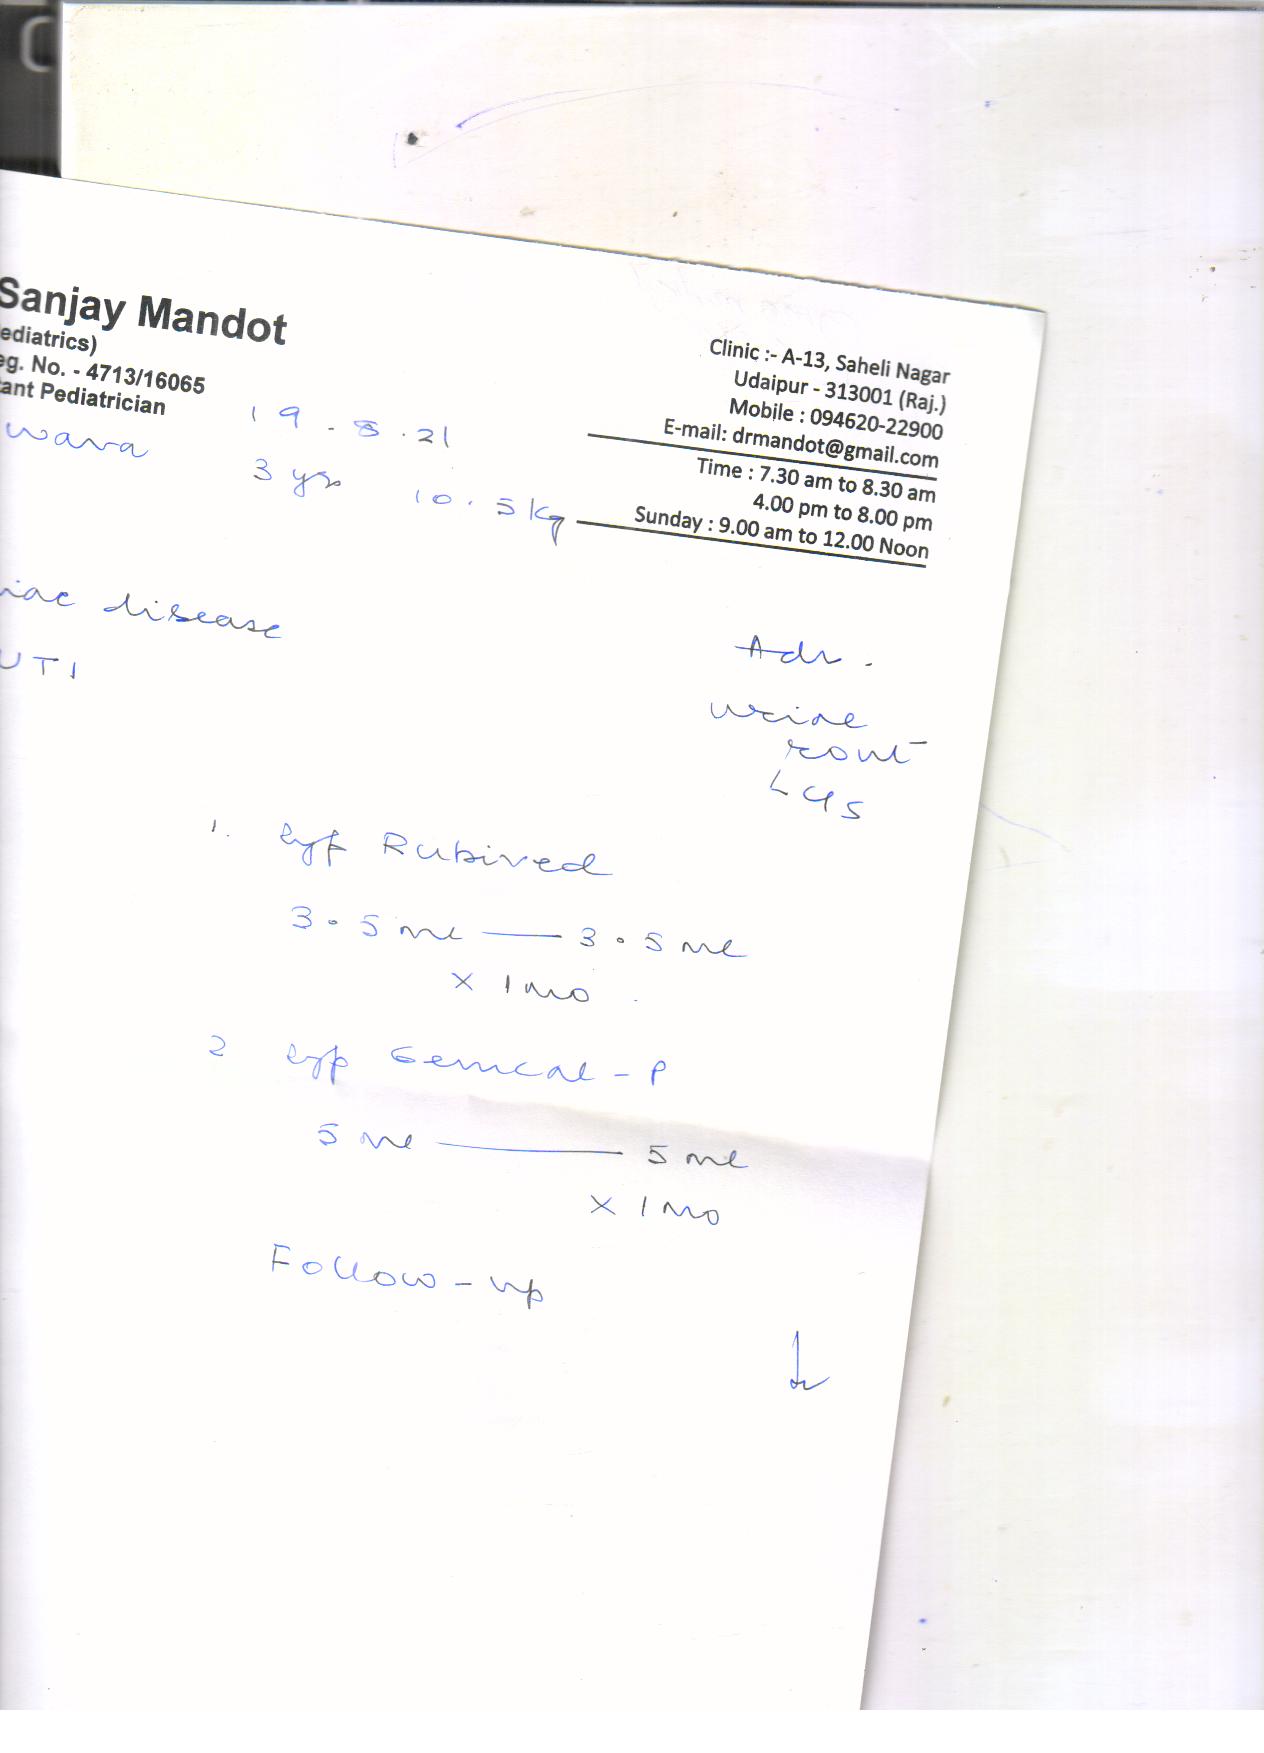 Sanjay Mandot
ediatrics)
eg. No. - 4713/16065
ant Pediatrician
Clinic :- A-13, Saheli Nagar
Udaipur - 313001 (Raj.)
Mobile : 094620-22900
E-mail: drmandot@gmail.com
Time : 7.30 am to 8.30 am
4.00 pm to 8.00 pm
Sunday : 9.00 am to 12.00 Noon
19.8.21
wara 3 yrs 10.5 kg
iac disease
UTI
Adv.
urine
rout
1. syp Rubired
3.5 ml — 3.5 ml
x 1 mo
2 syp Gemcal - P
5 ml — 5 ml
x 1 mo
Follow-up